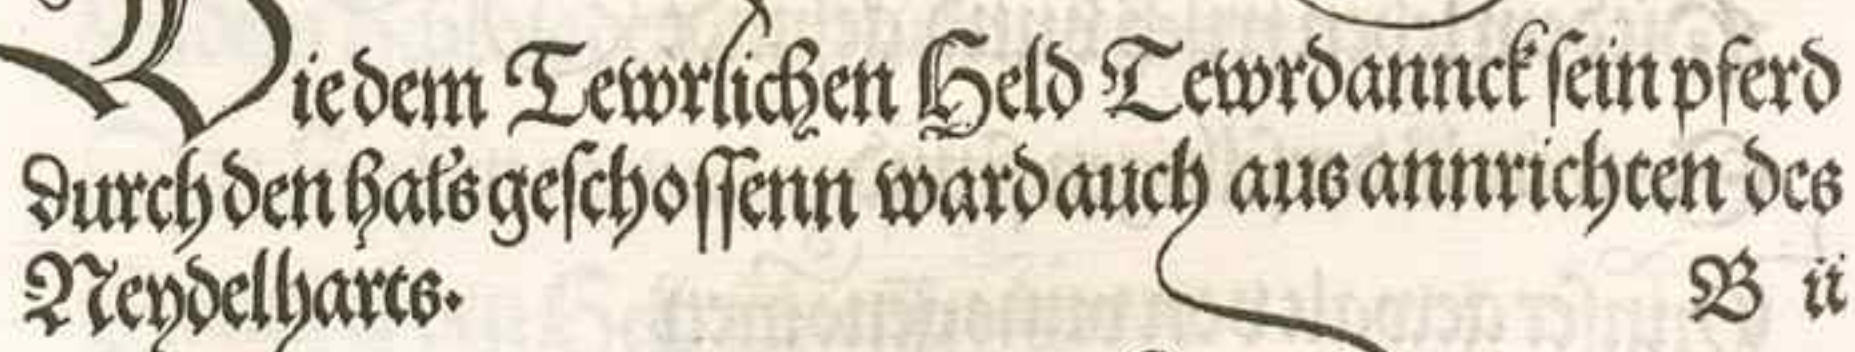 Wie dem Tewrlichen Held Tewrdannck sein pferd
durch den hals geschossenn ward auch aus annrichten des
Neydelharts.
B ii